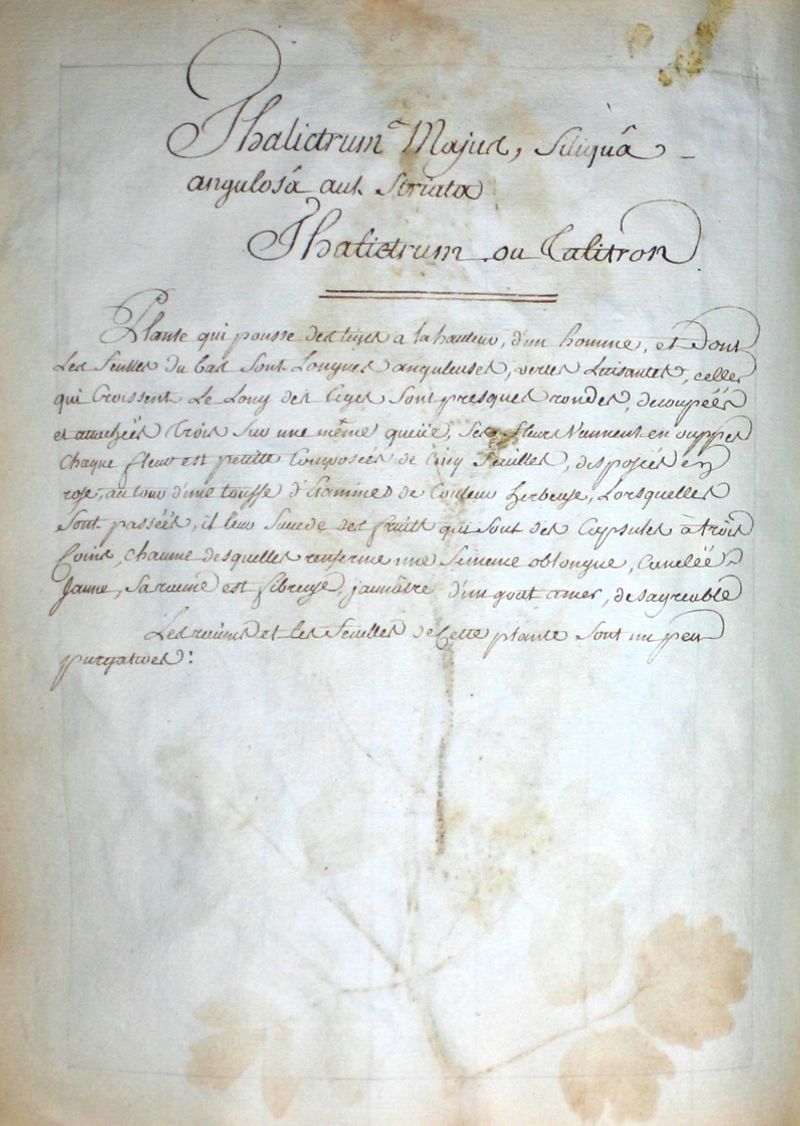 Thalictrum Majus, Siliquâ
angulosâ aut Striata
Thalictrum ou Talitron
Plante qui pousse des tiges a la hauteur, d'un homme, et Dont
Les feuilles du bas sont Longues anguleuses, vertes Luisantes, celles
qui Croissent Le Long des tiges sont presques rondes, decoupées
et attachées trois sur une même queüe, Ses fleurs viennent en
Chaque fleur est petite Composées de Cinq feuilles, disposées en
rose, au tour d'une touffe d'Etamines de Couleur herbeuse, Lorsquelles
Sont passées, il leur succede des fruits qui sont des Capsules à trois
Coins, chacune desquelles renferme une Semence oblongue, Canelée
Jaune, Sa racine est fibreuse, jaunâtre d'un gout amer, desagreable
Les racines et les feuilles de Cette plante sont un peu
purgatives: